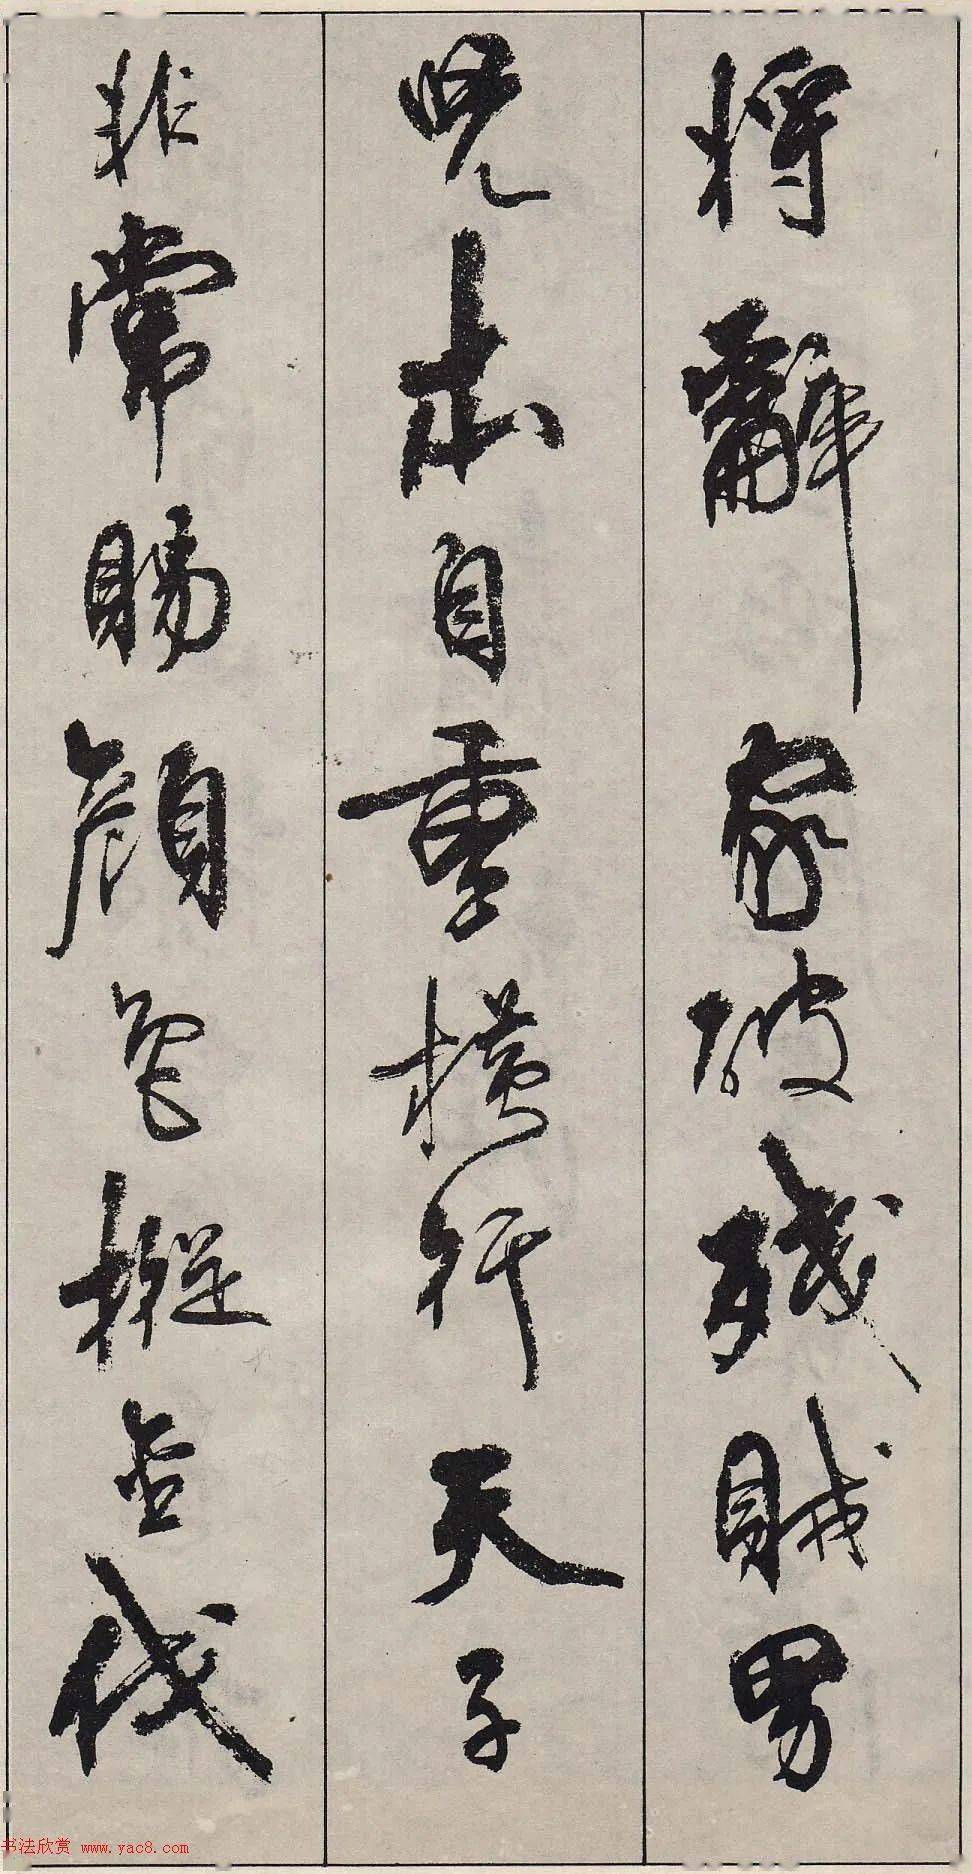 将辭家破殘賊男
兒本自重橫行天子
非常賜顏色摐金伐
书法欣赏 www.yac8.com